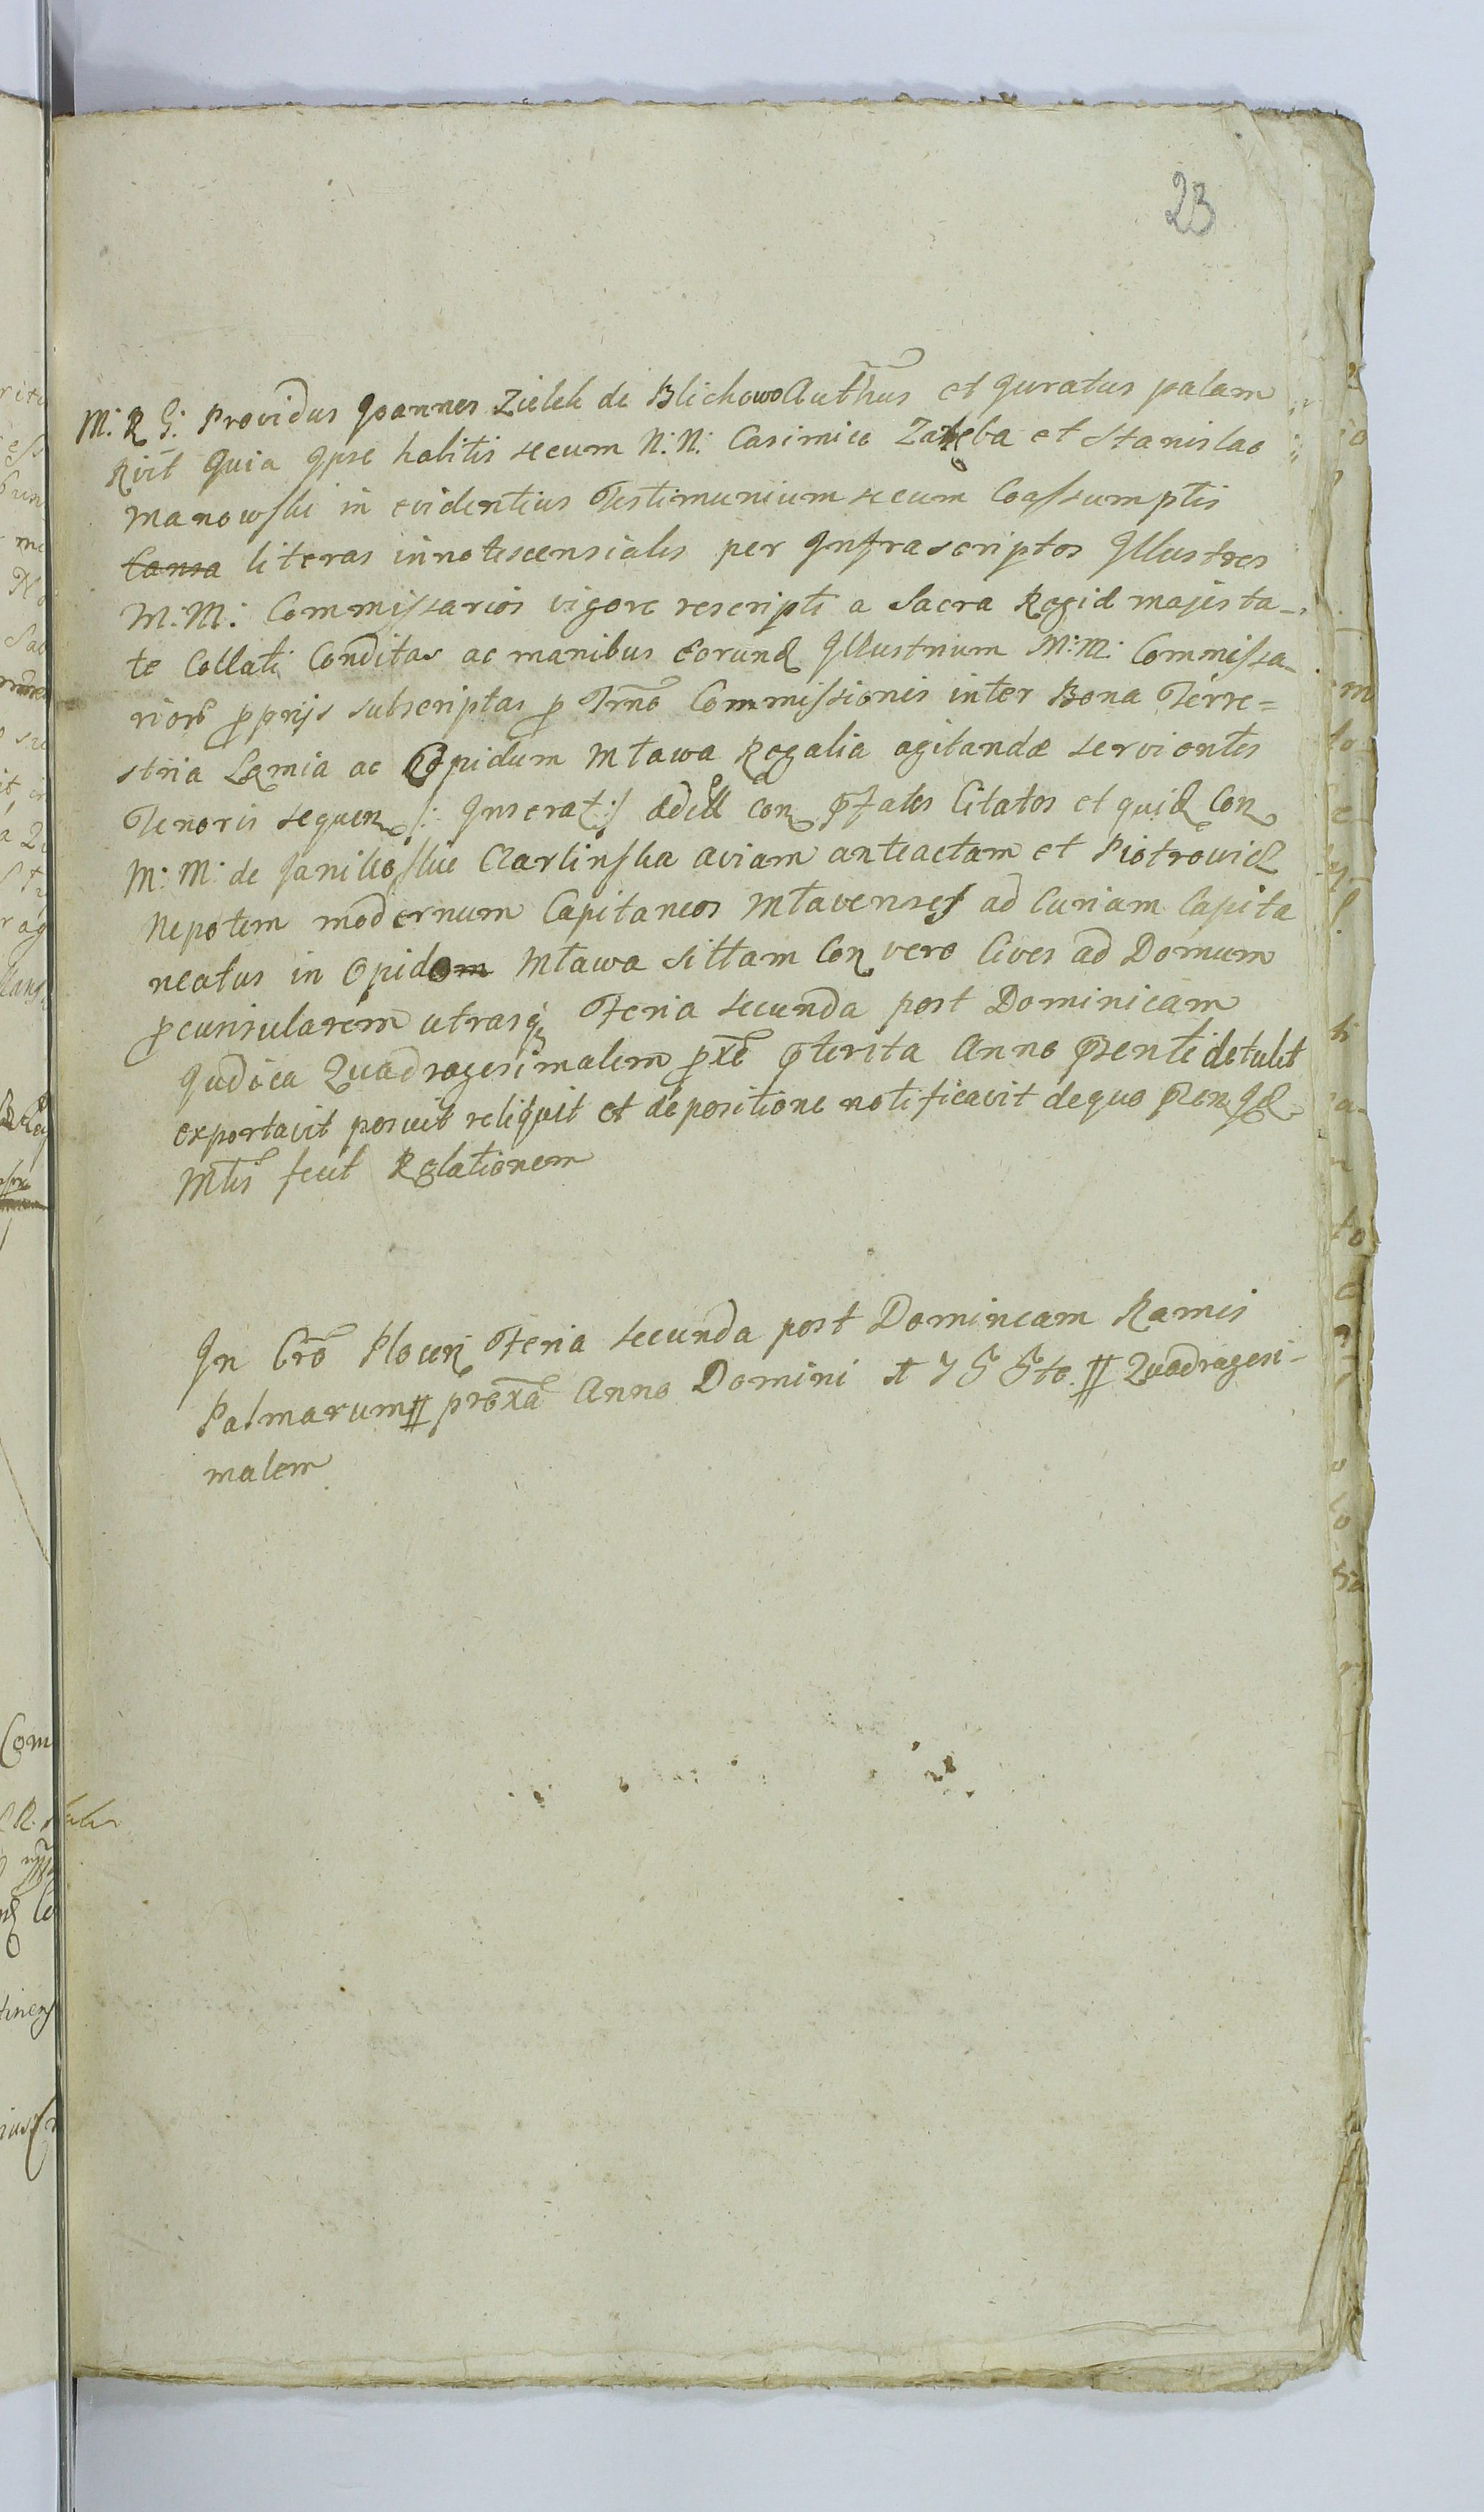 23
M: R G: Providus Joannes Zielek de Blichowo Auth̃us et Juratus palam
Rvit Quia Jpse habitis secum N: N: Casimiro Zareba et Stanislao
Manowski in evidentius Testimunium secum Coassumptis
literas innotescensiales per Jnfrascriptos Jllustres
M: M: Commissarios vigore rescripti a Sacra Regia majesta-
te Collati Conditas ac manibus eorund Jllustrium M: M: Commissa-
rior̃ pprijs subscriptas p Trno Commissionis inter Bona Terre=
stria Lomia ac Opidum Mława Regalia agitandæ servientes
Tenoris sequen /: Jnserat :/ con pfatos Citatos et quid Con
M: M: de Czarlinska aviam anteactam et Piotrowicz
Nepotem modernum Capitaneos Mlavenses ad Curiam Capita
neatus in Opido Mława sittam Con vero Cives ad Domum
pcunsularem utrasq Feria Secunda post Dominicam
Judica Quadragesimalem pxe pterita Anno pzente detulit
exportavit posuit reliquit et de positione notificavit de quo pzen Jd
Mtis fecit Relationem
Jn Cro Plocen Feria Secunda post Dominicam Ramis
Palmarum # proxa Anno Domini 1755to # Quadragesi-
malem